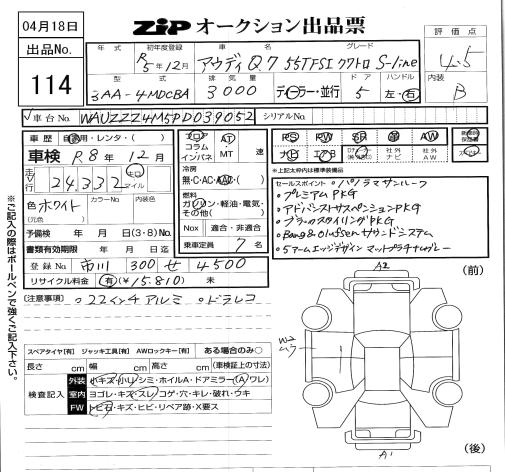 04月18日
ZIP オークション出品票
出品No.
114
年式
初年度登録
R5年12月
車名
アウディ Q7 55TFSI クワトロ S-line
グレード
評価点
4.5
型式
3AA-4MDCBA
排気量
3000
ディーラー・並行
ドア
5
ハンドル
左・右
内装
B
車台No.
WAUZZZ4M5PD039052
シリアルNo.
車歴 自家用・レンタ・( )
車検 R8年12月
走行
24,332
km
マイル
色 ホワイト
(元色)
カラーNo.
内装色
予備検 年 月 日(3・8)No.
書類有効期限 年 月 日迄
登録No. 市川 300 せ 4500
リサイクル料金 有(¥15,810) 未
フロア
コラム
インパネ
AT
MT
速
冷房
無・C・AC・AAC・( )
燃料
ガソリン・軽油・電気・
その他( )
Nox 適合・非適合
乗車定員 7 名
PS
PW
SR
革
AW
ナビ
エアB
社外
ナビ
社外
AW
※上記太枠内は標準装備品
セールスポイント ○パノラマサンルーフ
○プレミアムPKG
○アドバンストサスペンションPKG
○ブラックスタイリングPKG
○Bang&Olufsenサウンドシステム
○5アームエッジデザイン マットプラチナムグレー
(注意事項) ○22インチアルミ ○ドラレコ
※ご記入の際はボールペンで強くご記入下さい。
スペアタイヤ[有] ジャッキ工具[有] AWロックキー[有] ある場合のみ○
長さ cm 幅 cm 高さ cm (車検証上の寸法)
検査記入
外装 小キズ・小凹 シミ・ホイルA・ドアミラー(A ワレ)
室内 ヨゴレ・キズ・スレ コゲ・穴・キレ・破れ・ウキ
FW トビ石・キズ・ヒビ・リペア跡・X要ス
(前)
A2
A1
(後)